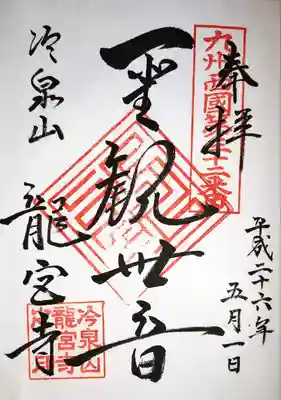 奉拝
九州西國第卅二番
平成二十六年
五月一日
聖観世音
冷泉山
龍宮寺
冷泉山
龍宮寺